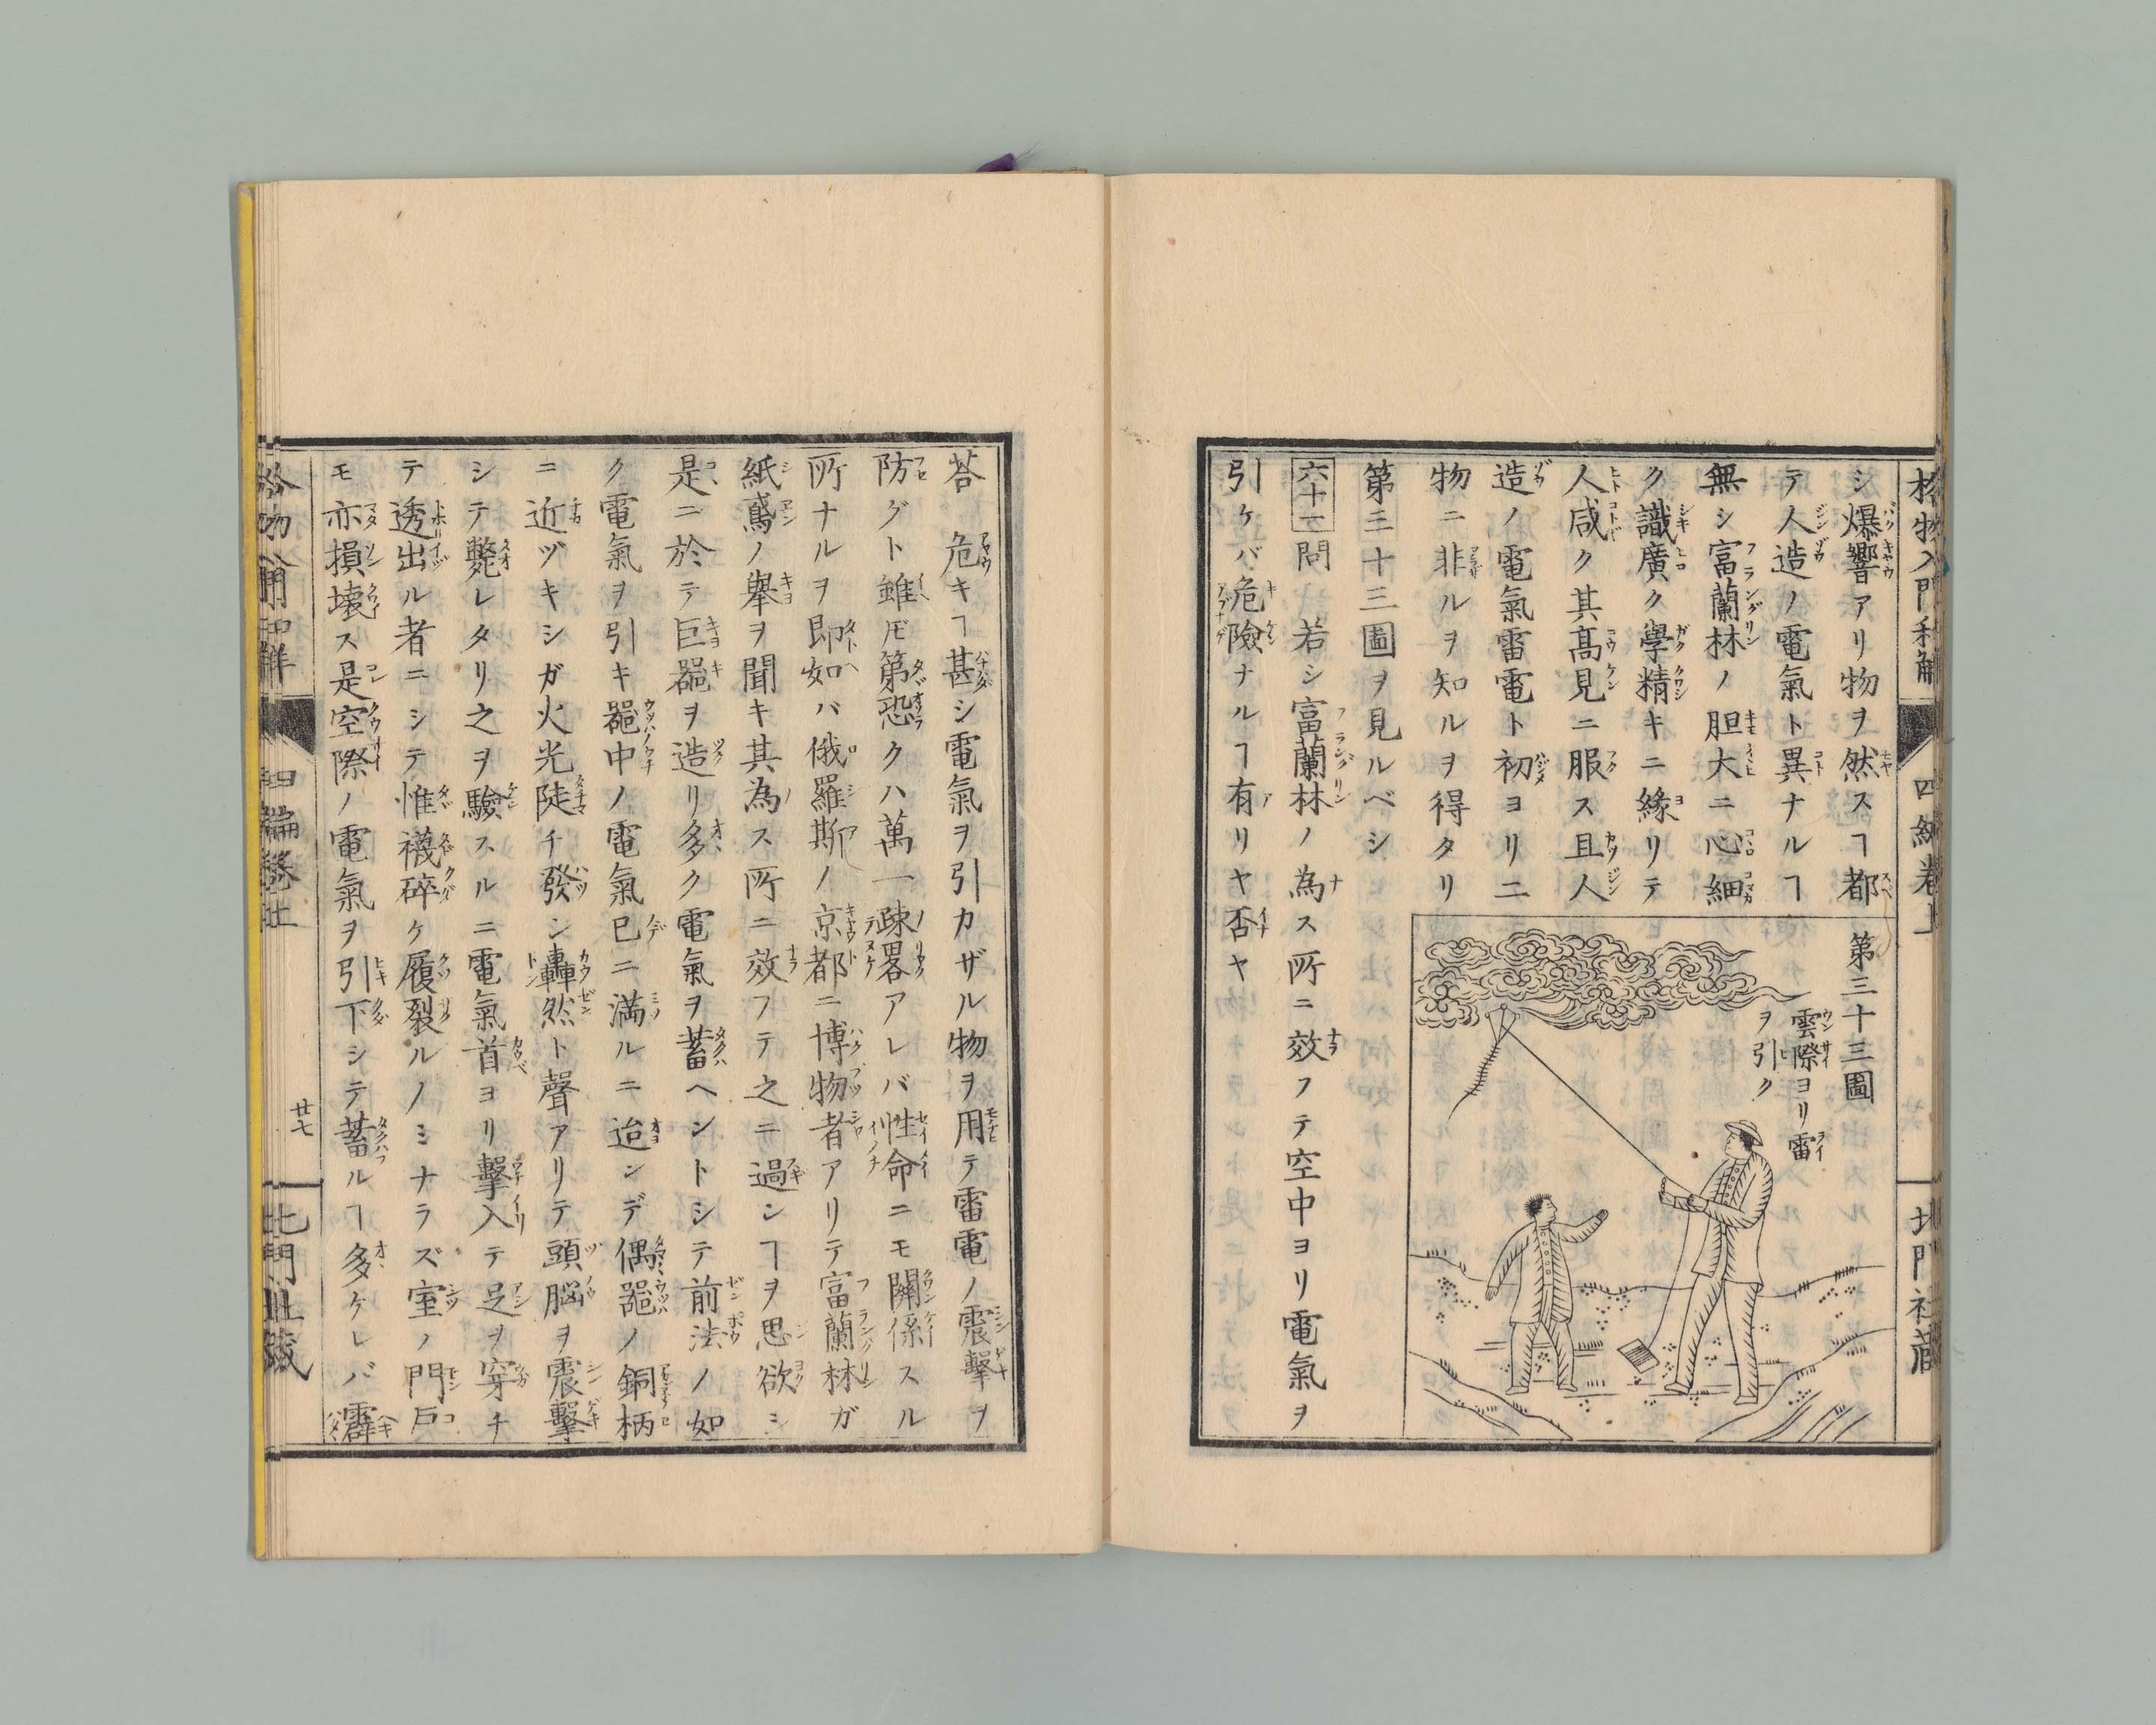 格物入門和解
四編卷上
北門社蔵
シ爆響アリ物ヲ然スヿ都
テ人造ノ電氣ト異ナルヿ
無シ富蘭林ノ胆大ニ心細
ク識廣ク學精キニ緣リテ
人咸ク其髙見ニ服ス且人
造ノ電氣雷電ト初ヨリ二
物ニ非ルヲ知ルヲ得タリ
第三十三圖ヲ見ルベシ
第三十三圖
雲際ヨリ雷
ヲ引ク
六十一問 若シ富蘭林ノ為ス所ニ效フテ空中ヨリ電氣ヲ
引ケバ危險ナルヿ有リヤ否ヤ
荅 危キヿ甚シ電氣ヲ引カザル物ヲ用テ雷電ノ震擊ヲ
防グト雖𪜈第恐クハ萬一疎畧アレバ性命ニモ關係スル
所ナルヲ即如バ俄羅斯ノ京都ニ博物者アリテ富蘭林ガ
紙鳶ノ舉ヲ聞キ其為ス所ニ效フテ之ニ過ンヿヲ思欲シ
是ニ於テ巨噐ヲ造リ多ク電氣ヲ蓄ヘントシテ前法ノ如
ク電氣ヲ引キ噐中ノ電氣已ニ滿ルニ迨ンデ偶噐ノ銅柄
ニ近ヅキシガ火光陡チ發シ轟然ト聲アリテ頭脳ヲ震擊
シテ斃レタリ之ヲ驗スルニ電氣首ヨリ擊入テ足ヲ穿チ
テ透出ル者ニシテ惟襪碎ケ履裂ルノミナラズ室ノ門戸
モ亦損壊ス是空際ノ電氣ヲ引下シテ蓄ルヿ多ケレバ霹
格物入門和解
四編卷上
廿七
北門社藏